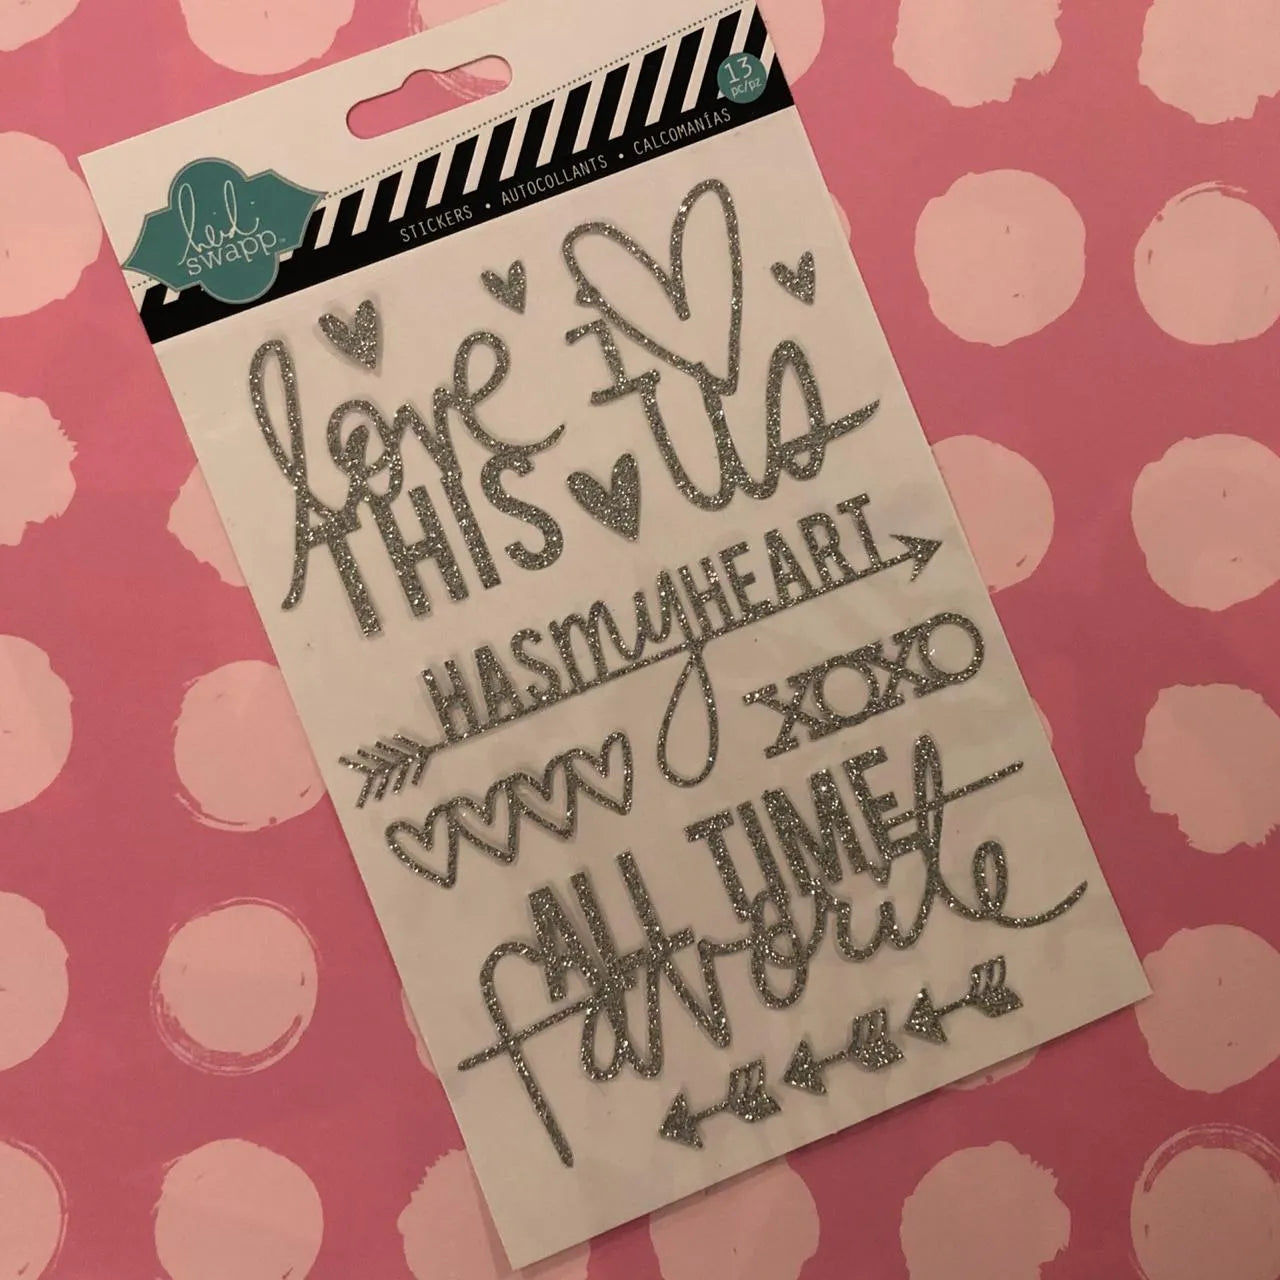 13
pc/pz
heidi
swapp™
STICKERS • AUTOCOLLANTS • CALCOMANÍAS
love
THIS
I
US
HAS my HEART
XOXO
ALL TIME
favorite